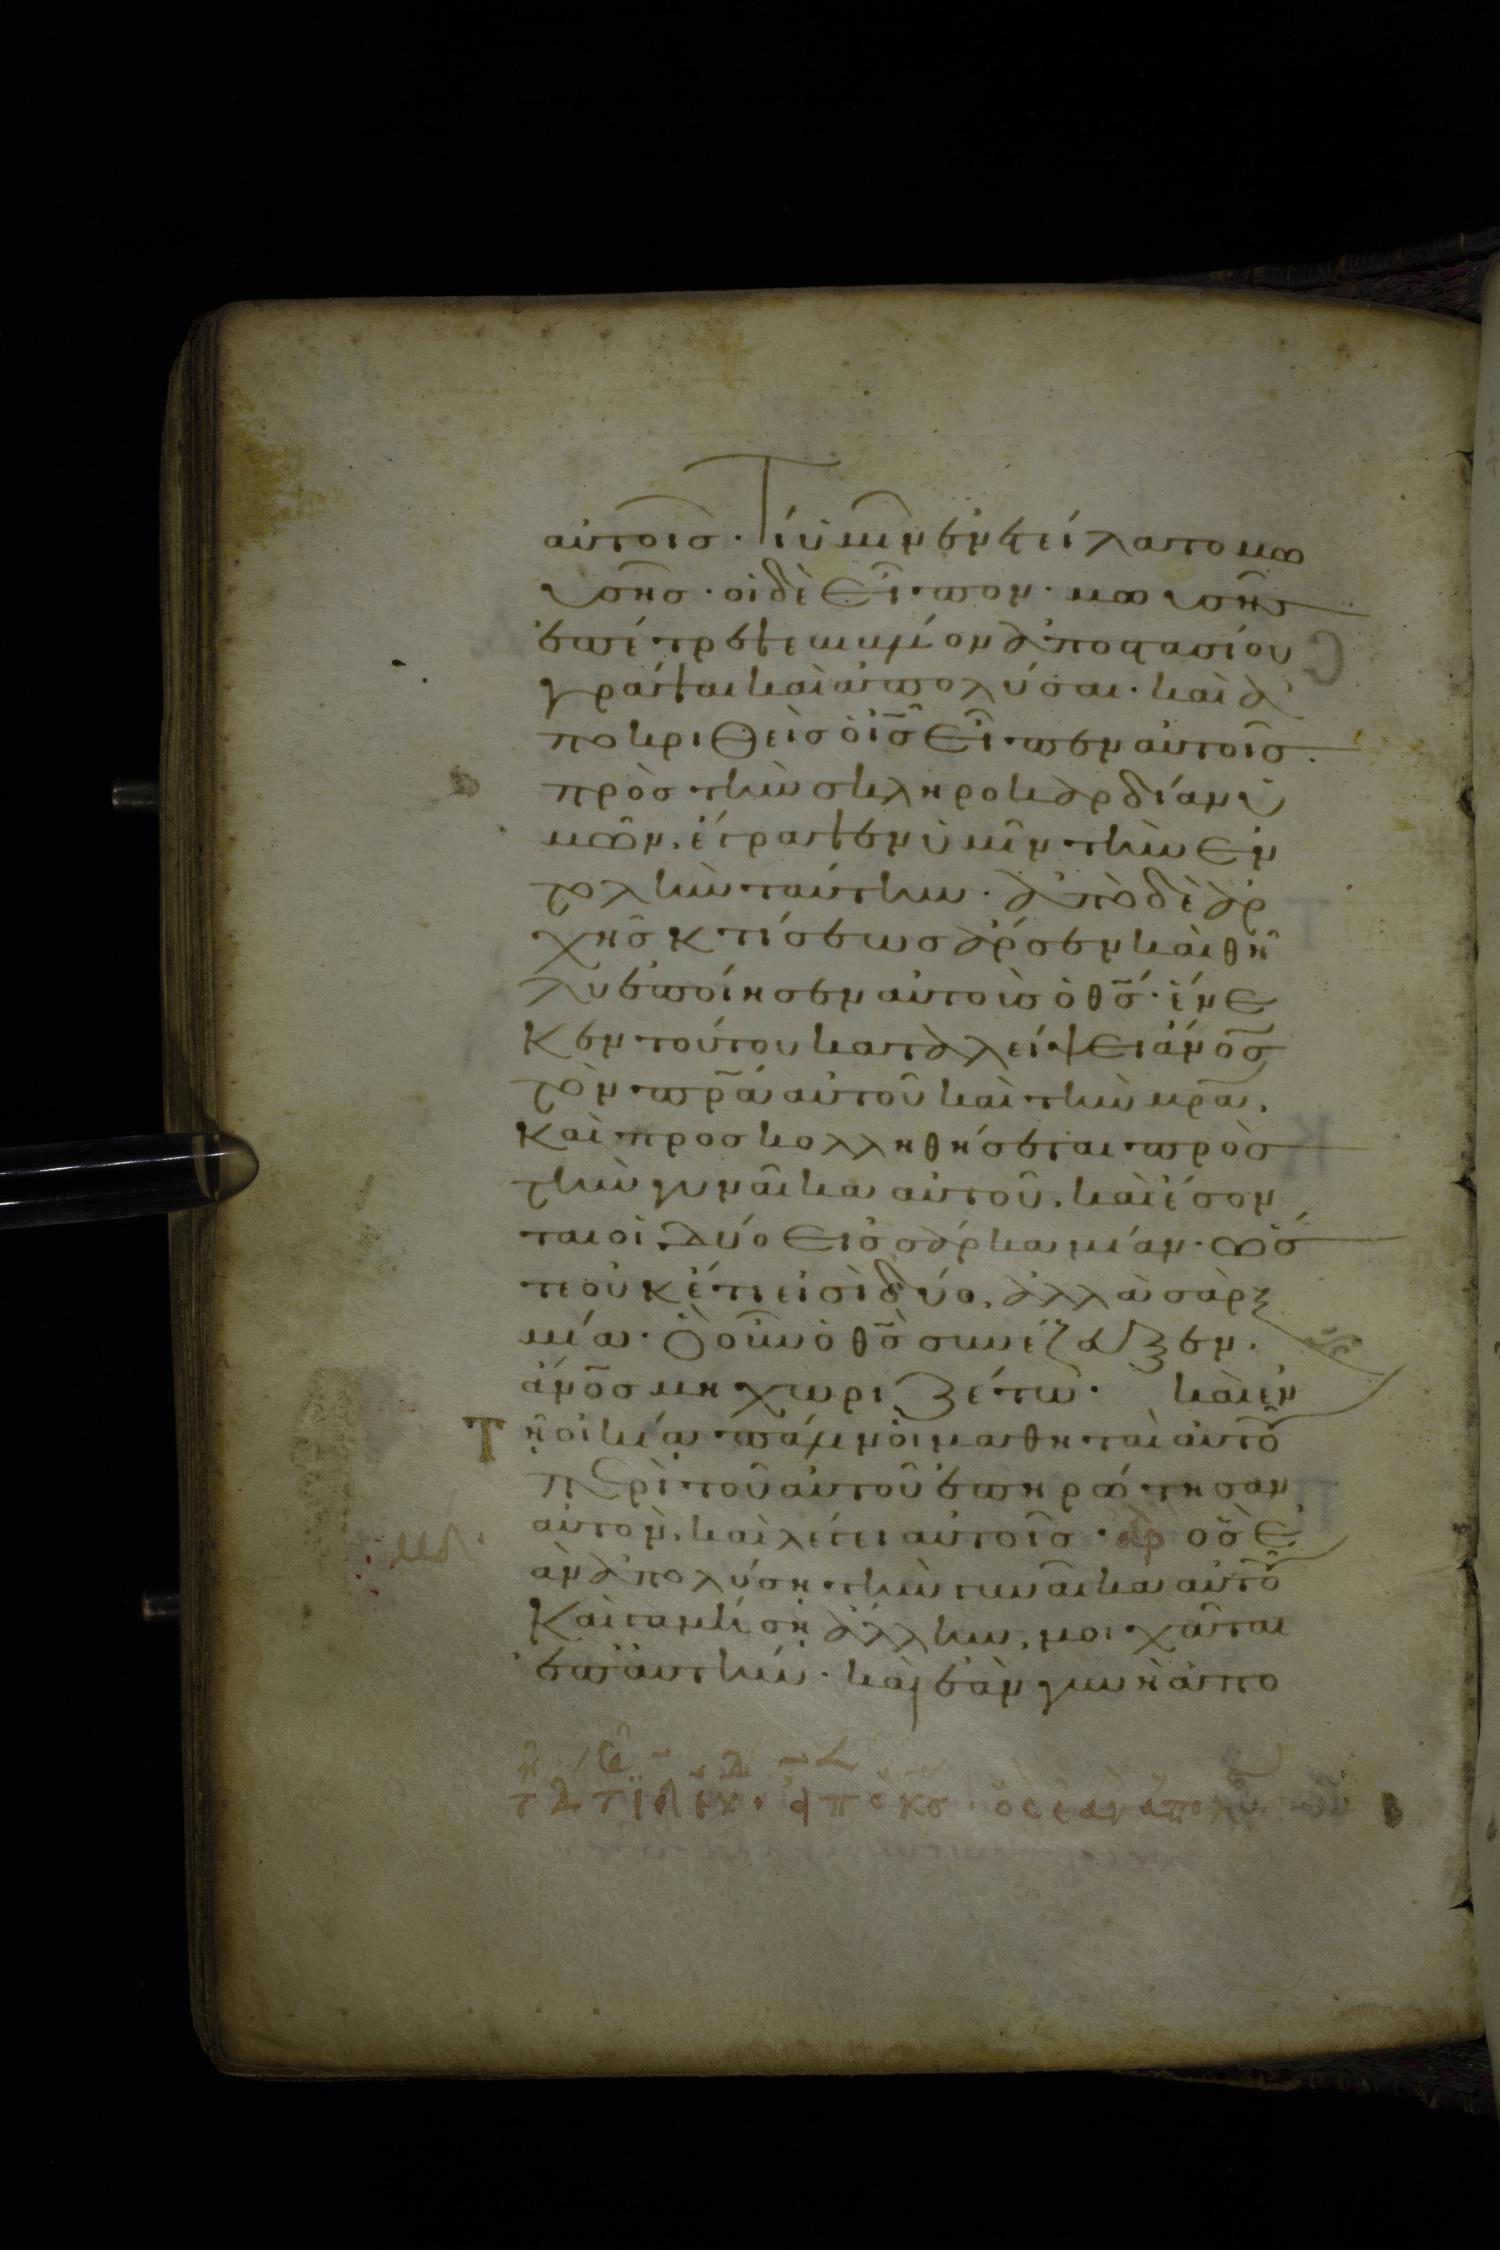 αὐτοῖσ· Τί ὑμῖν ἐνετείλατο μω
ϋσῆσ· οἱ δὲ εἶπον· μωϋσῆς
ἐπέτρεψε βιβλίον ἀποστασίου
γράψαι καὶ ἀπολύσαι· καὶ ἀ
ποκριθεὶσ ὁ ισ̅ εἶπεν αὐτοῖσ·
πρὸσ τὴν σκληροκαρδίαν ὑ
μῶν, ἔγραψεν ὑμῖν τὴν ἐν
τολὴν ταύτην· ἀπὸ δὲ ἀρ
χῆσ κτίσεωσ ἄρσεν καὶ θῆ
λυ ἐποίησεν αὐτοὺσ ὁ θσ̅· ἕνε
κεν τούτου καταλείψει ἄνοσ̅
τὸν πρ̅α αὐτοῦ καὶ τὴν μρ̅α,
καὶ προσκολληθήσεται πρὸσ
τὴν γυναῖκα αὐτοῦ, καὶ ἔσον
ται οἱ δύο εἰσ σάρκα μίαν· ὥσ
τε οὐκέτι εἰσὶ δύο, ἀλλὰ σὰρξ
μία· Ὃ οὖν ὁ θσ̅ συνέζευξεν·
ἄνοσ̅ μὴ χωριζέτω· καὶ ἐν
Τῆ οἰκία πάλιν οἱ μαθηταὶ αὐτοῦ
περὶ τοῦ αὐτοῦ ἐπηρώτησαν
αὐτὸν, καὶ λέγει αὐτοῖσ· ὃσ ἐ
ὰν ἀπολύση τὴν γυναῖκα αὐτοῦ
καὶ γαμήση ἄλλην, μοιχᾶται
ἐπ' αὐτήν· καὶ ἐὰν γυνὴ ἀπο
εἶπ ὁ κσ· ὃς ἐὰν ἀπολύ